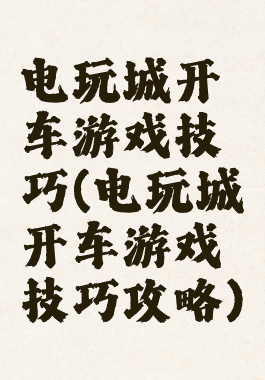 电玩城开
车游戏技
巧(电玩城
开车游戏
技巧攻略)